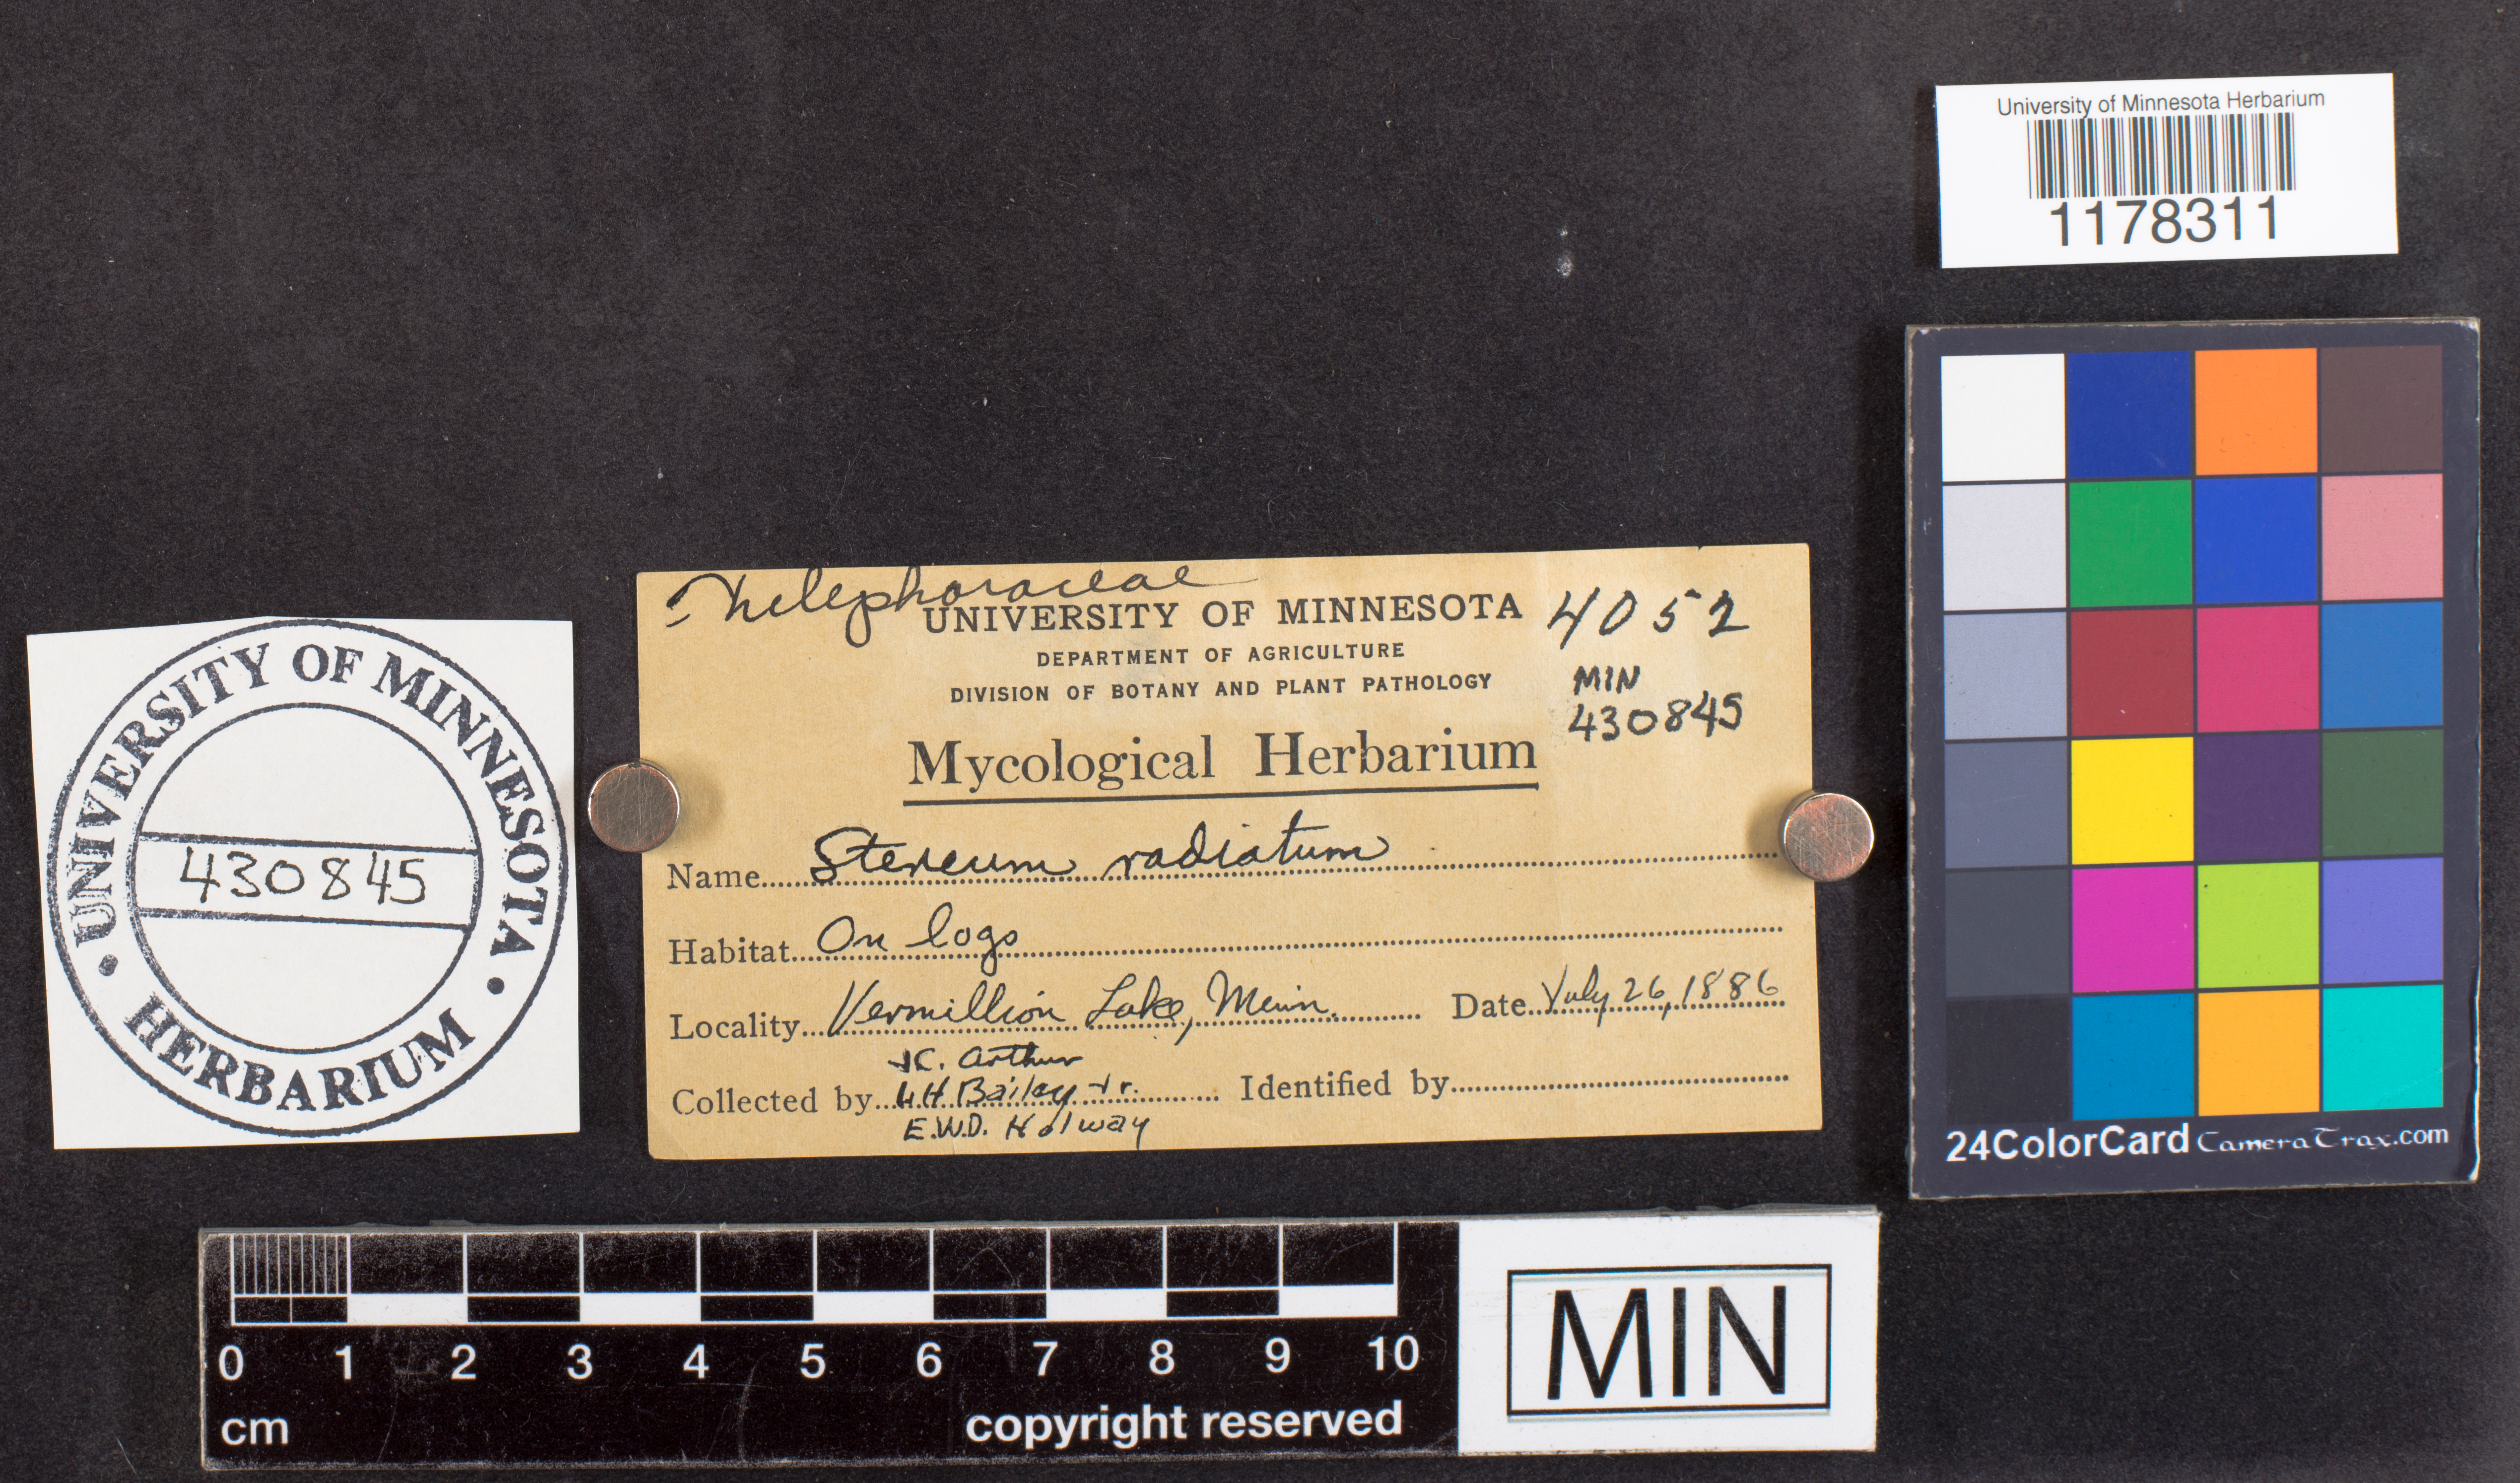 University of Minnesota Herbarium
1178311
Thelephoraceae
UNIVERSITY OF MINNESOTA 4052
DEPARTMENT OF AGRICULTURE
DIVISION OF BOTANY AND PLANT PATHOLOGY
MIN
430845
Mycological Herbarium
Name Stereum radiatum
Habitat On logs
Locality Vermillion Lake, Minn. Date July 26, 1886
J.C. Arthur
Collected by L H Bailey Jr. Identified by
E.W.D. Holway
UNIVERSITY OF MINNESOTA
430845
HERBARIUM
24ColorCard CameraTrax.com
0 1 2 3 4 5 6 7 8 9 10
cm copyright reserved
MIN